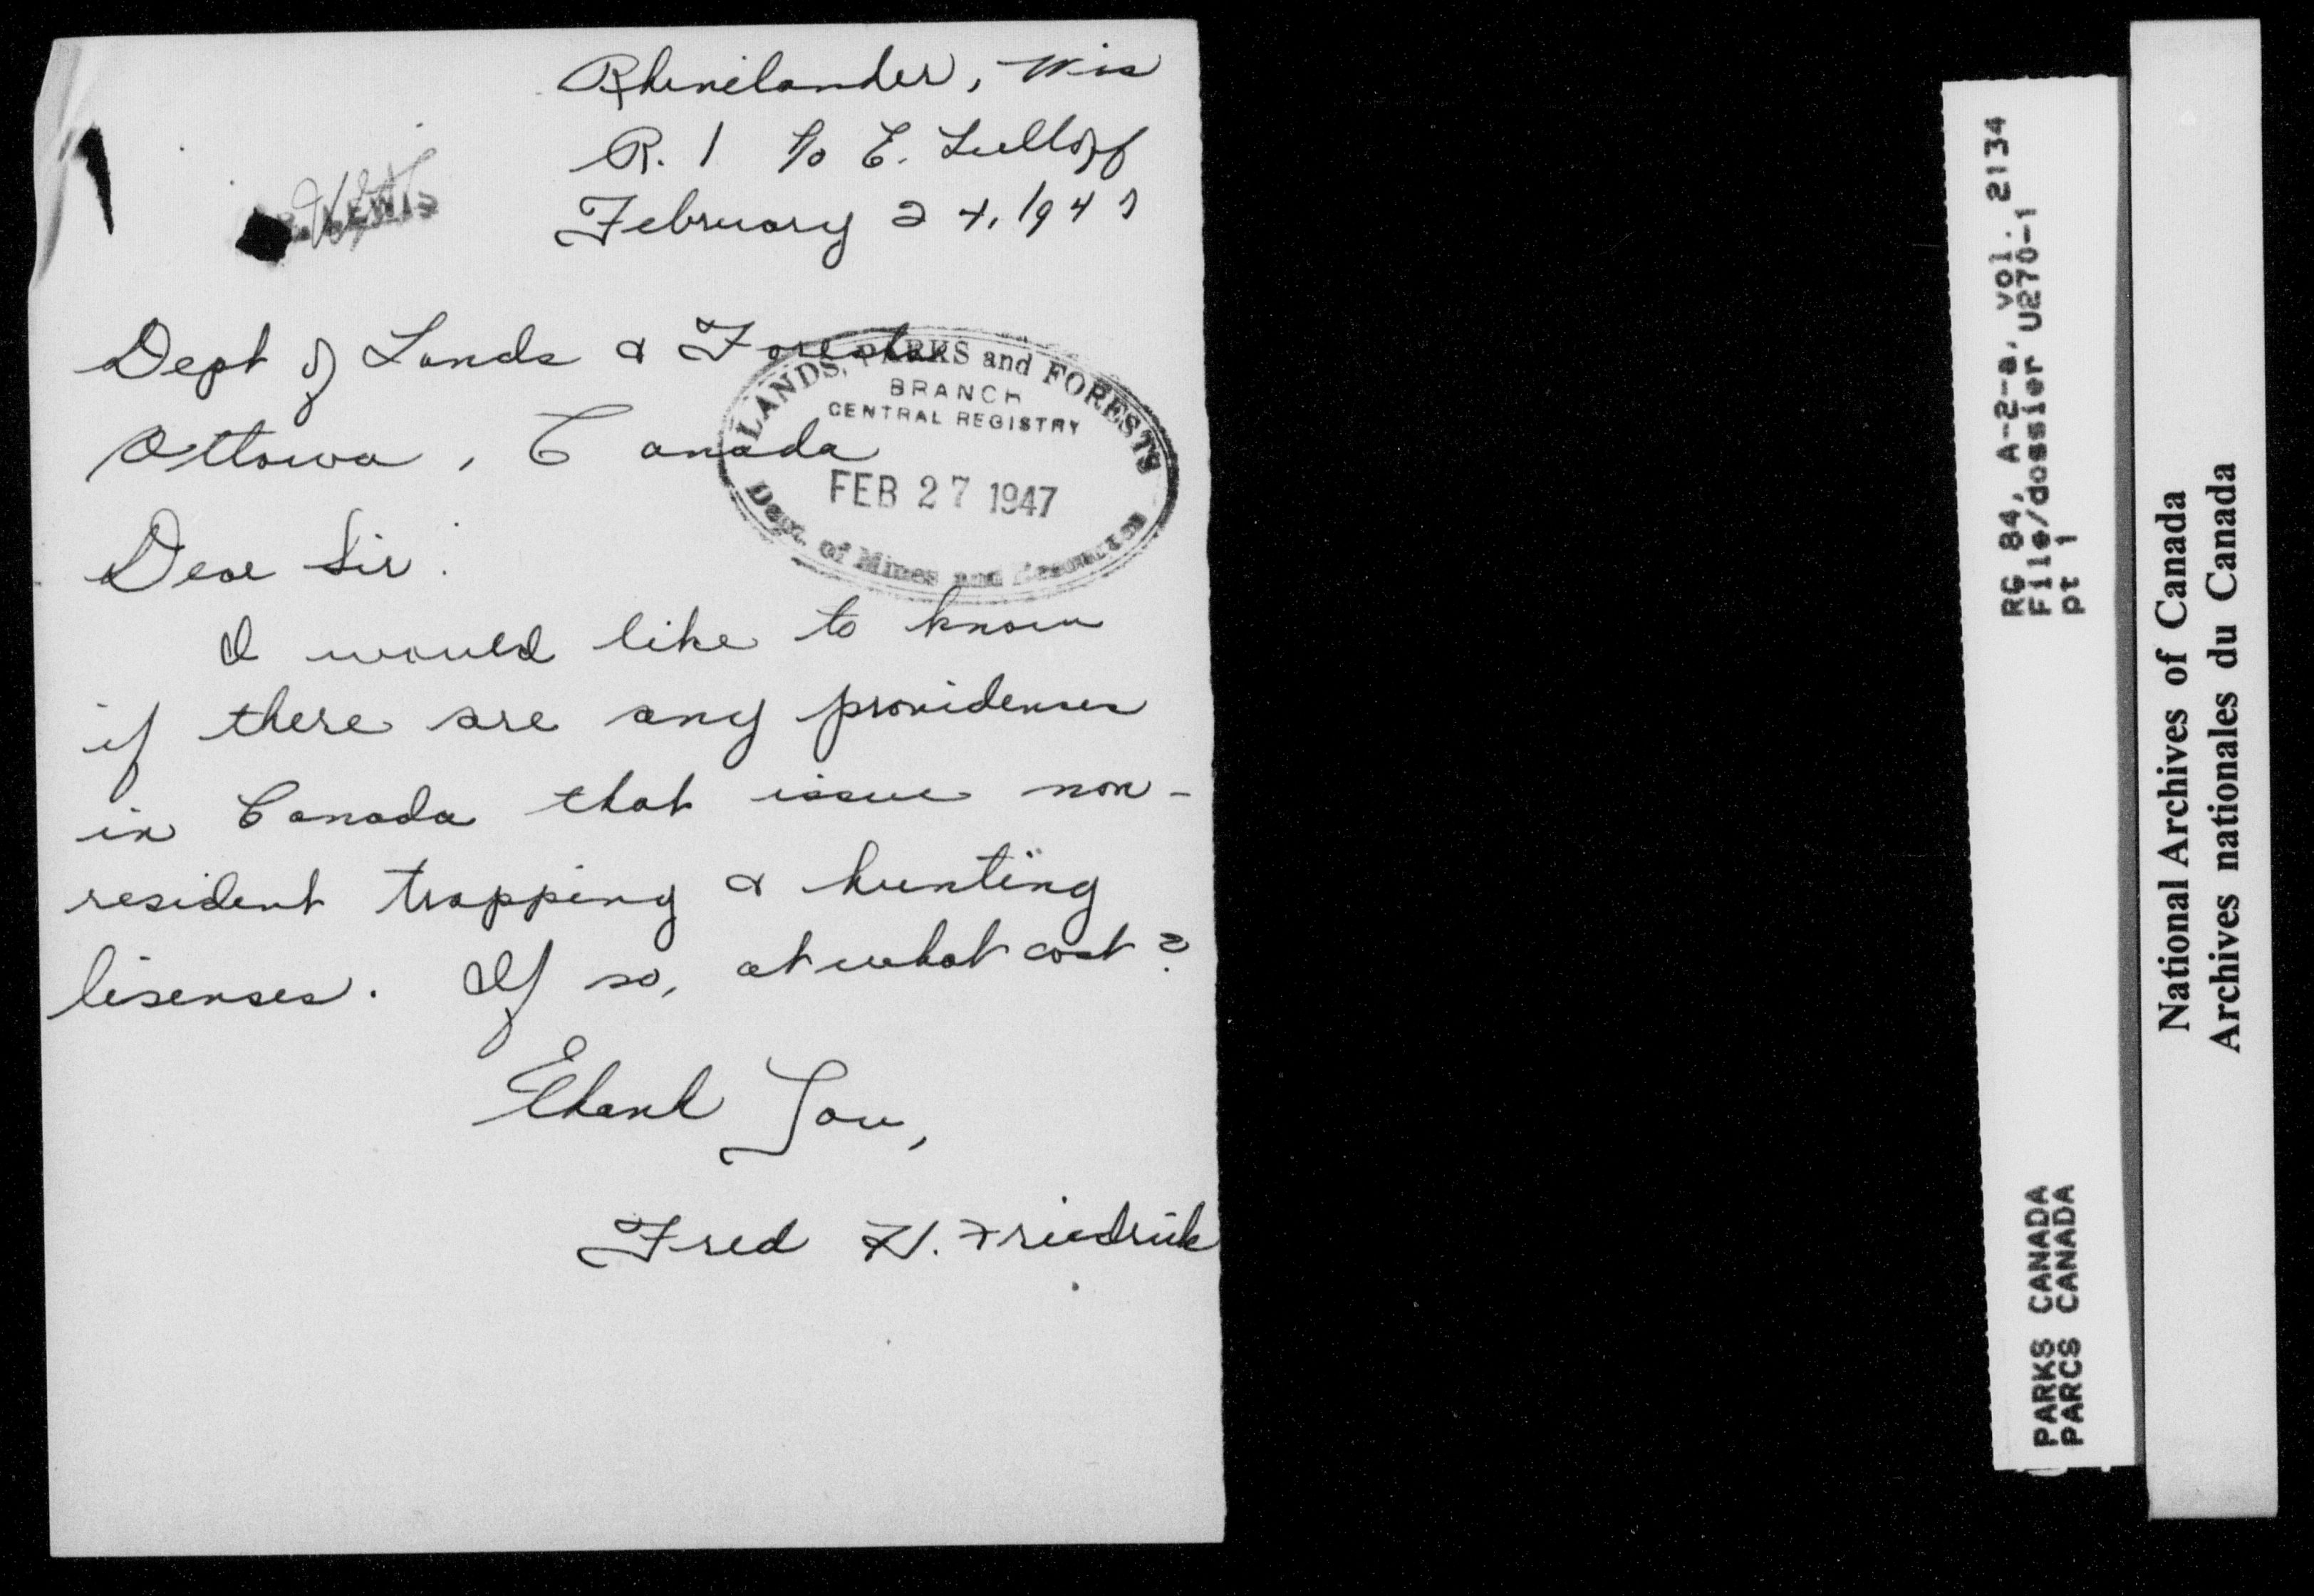 Rhinelander, Wis
R. 1 c/o E. Lulloff
February 24, 1947
LEWIS
Dept of Lands & Forests
Ottowa, Canada
LANDS, PARKS and FORESTS
BRANCH
CENTRAL REGISTRY
FEB 27 1947
Dept. of Mines and Resources
Dear Sir:
I would like to know
if there are any providenses
in Canada that issue non-
resident trapping & hunting
lisenses. If so, at what cost?
Thank You,
Fred H. Friedrick
RG 84, A-2-a, vol. 2134
File/dossier U270-1
pt 1
PARKS CANADA
PARCS CANADA
National Archives of Canada
Archives nationales du Canada